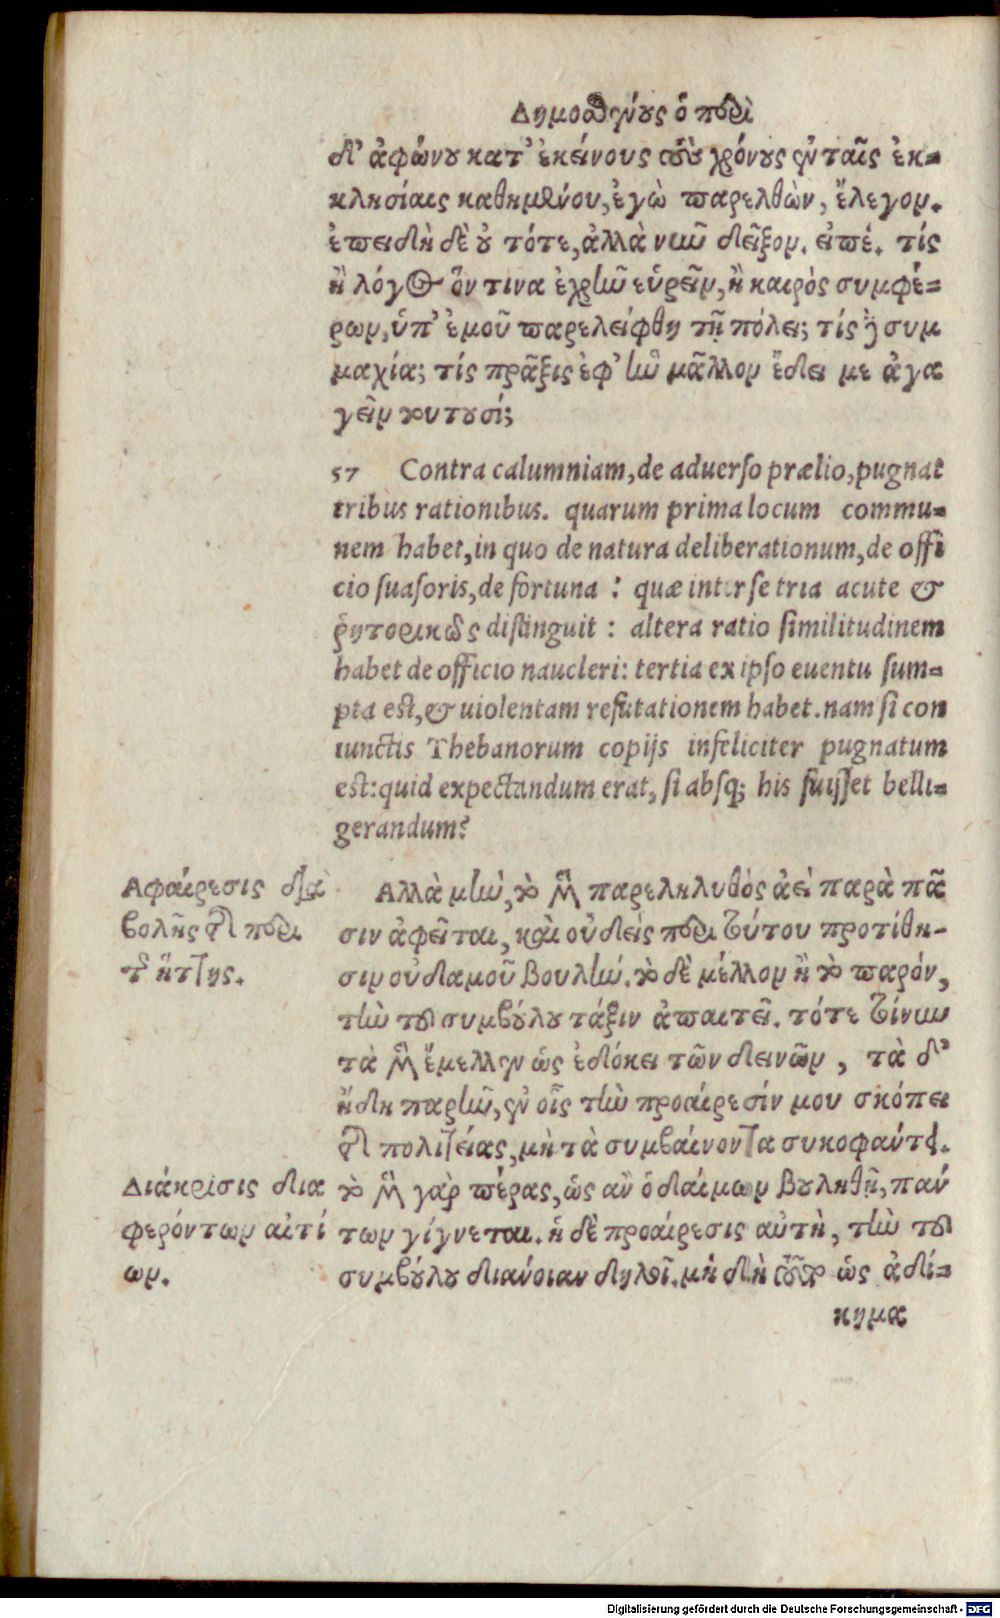 Δημοσθένους ὁ περὶ
δ' ἀφώνου κατ' ἐκείνους τοὺς χρόνους ἐν ταῖς ἐκ-
κλησίαις καθημένου, ἐγὼ παρελθὼν, ἔλεγον.
ἐπειδὴ δὲ οὐ τότε, ἀλλὰ νῦν δεῖξον. εἰπέ. τίς
ἢ λόγος ὅν τινα ἐχρῆν εὑρεῖν, ἢ καιρὸς συμφέ-
ρων, ὑπ' ἐμοῦ παρελείφθη τῇ πόλει; τίς δὲ συμ
μαχία; τίς πρᾶξις ἐφ' ἣν μᾶλλον ἔδει με ἀγα
γεῖν τουτουσί;
57 Contra calumniam, de aduerso prælio, pugnat
tribus rationibus. quarum prima locum commu-
nem habet, in quo de natura deliberationum, de offi
cio suasoris, de fortuna : quæ inter se tria acute &
ῥητορικῶς distinguit : altera ratio similitudinem
habet de officio naucleri: tertia ex ipso euentu sum-
pta est, & uiolentam refutationem habet. nam si con
iunctis Thebanorum copijs infeliciter pugnatum
est: quid expectandum erat, si absq; his fuisset belli-
gerandum?
Ἀφαίρεσις δια
βολῆς τῆς περὶ
τῆς ἥττης.
Ἀλλὰ μὴν, τὸ μὲν παρεληλυθὸς ἀεὶ παρὰ πᾶ
σιν ἀφεῖται, καὶ οὐδεὶς περὶ τούτου προτίθη-
σιν οὐδαμοῦ βουλήν. τὸ δὲ μέλλον ἢ τὸ παρόν,
τὴν τοῦ συμβούλου τάξιν ἀπαιτεῖ. τότε τοίνυν
τὰ μὲν ἔμελλεν ὡς ἐδόκει τῶν δεινῶν, τὰ δ'
ἤδη παρῆν, ἐν οἷς τὴν προαίρεσίν μου σκόπει
τῆς πολιτείας, μὴ τὰ συμβαίνοντα συκοφάντει.
Διάκρισις δια
φερόντων αἰτί
ων.
τὸ μὲν γὰρ πέρας, ὡς ἂν ὁ δαίμων βουληθῇ, πάν
των γίγνεται. ἡ δὲ προαίρεσις αὐτὴ, τὴν τοῦ
συμβούλου διάνοιαν δηλοῖ. μὴ δὴ τοῦτο ὡς ἀδί-
κημα
Digitalisierung gefördert durch die Deutsche Forschungsgemeinschaft - DFG